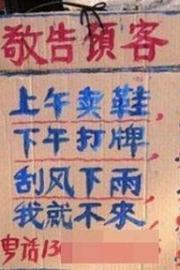 敬告顾客
上午卖鞋,
下午打牌,
刮风下雨
我就不來
电话13